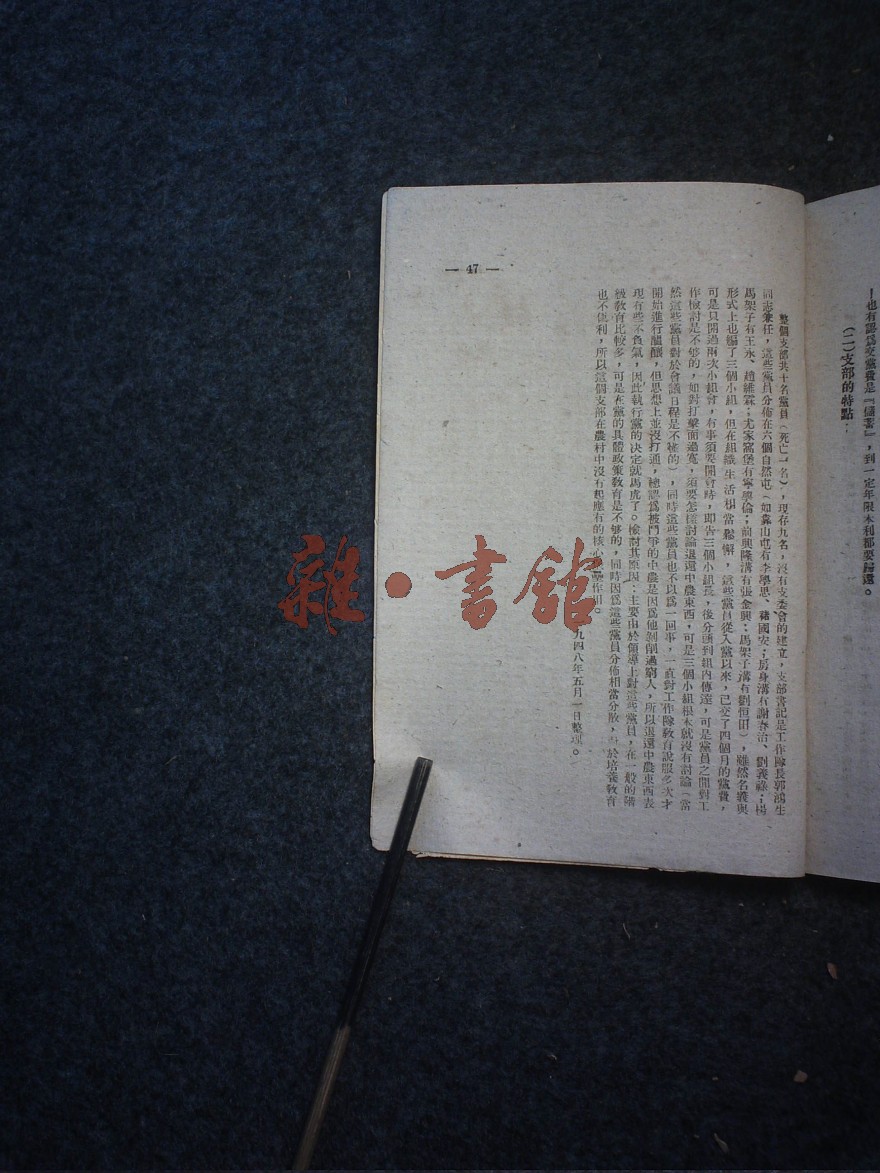 ！也有認爲交黨費是『儲蓄』，到一定年限本利都要歸還。
(二)支部的特點：
整個支部共十名黨員(死亡一名)，現存九名，沒有支委會的建立，支部書記是工作隊長郭鴻生
同志兼任，這些黨員分佈在六個自然屯(如靠山屯有李學思、藉國安；房身溝有謝春治、劉義祿；楊
馬架子有王永、趙維霖；尤家窩堡有寧學倫；前興隆溝有張金興；馬架子溝有劉恒田)，雖然名義與
形式上也編了三個小組，但在組織生活相當鬆懈，這些黨員從入黨以來，已交了四個月的黨費，
可是只開過兩次小組會，有事須要開會時，即告三個小組長，後分頭到組內傳達，可是黨員之間對工
作檢討是不够的，如對打擊面過寬，須要怎樣討論退還中農東西，可是三個小組根本就沒有討論(當
然這些黨員對於會議日程是不懂的)，同時這些黨員也不以爲一回事，一直對工作隊教育說服多次才
開始進行醞釀，但思想上並沒打通，總認爲被鬥爭的中農是因爲他剝削過窮人，所以退還中農東西表
現有些不負氣，因此執行黨的决定就馬虎了。檢討其原因：主要由於領導上對這些黨員，在一般的階
級教育比較多，可是在黨的具體政策教育是不够的，同時因爲這些黨員分佈相當分散，對於培養教育
也不便利，所以這個支部在農村中沒有起應有的核心作用。
九四八年五月一日整理。
— 47 —
雜·書館